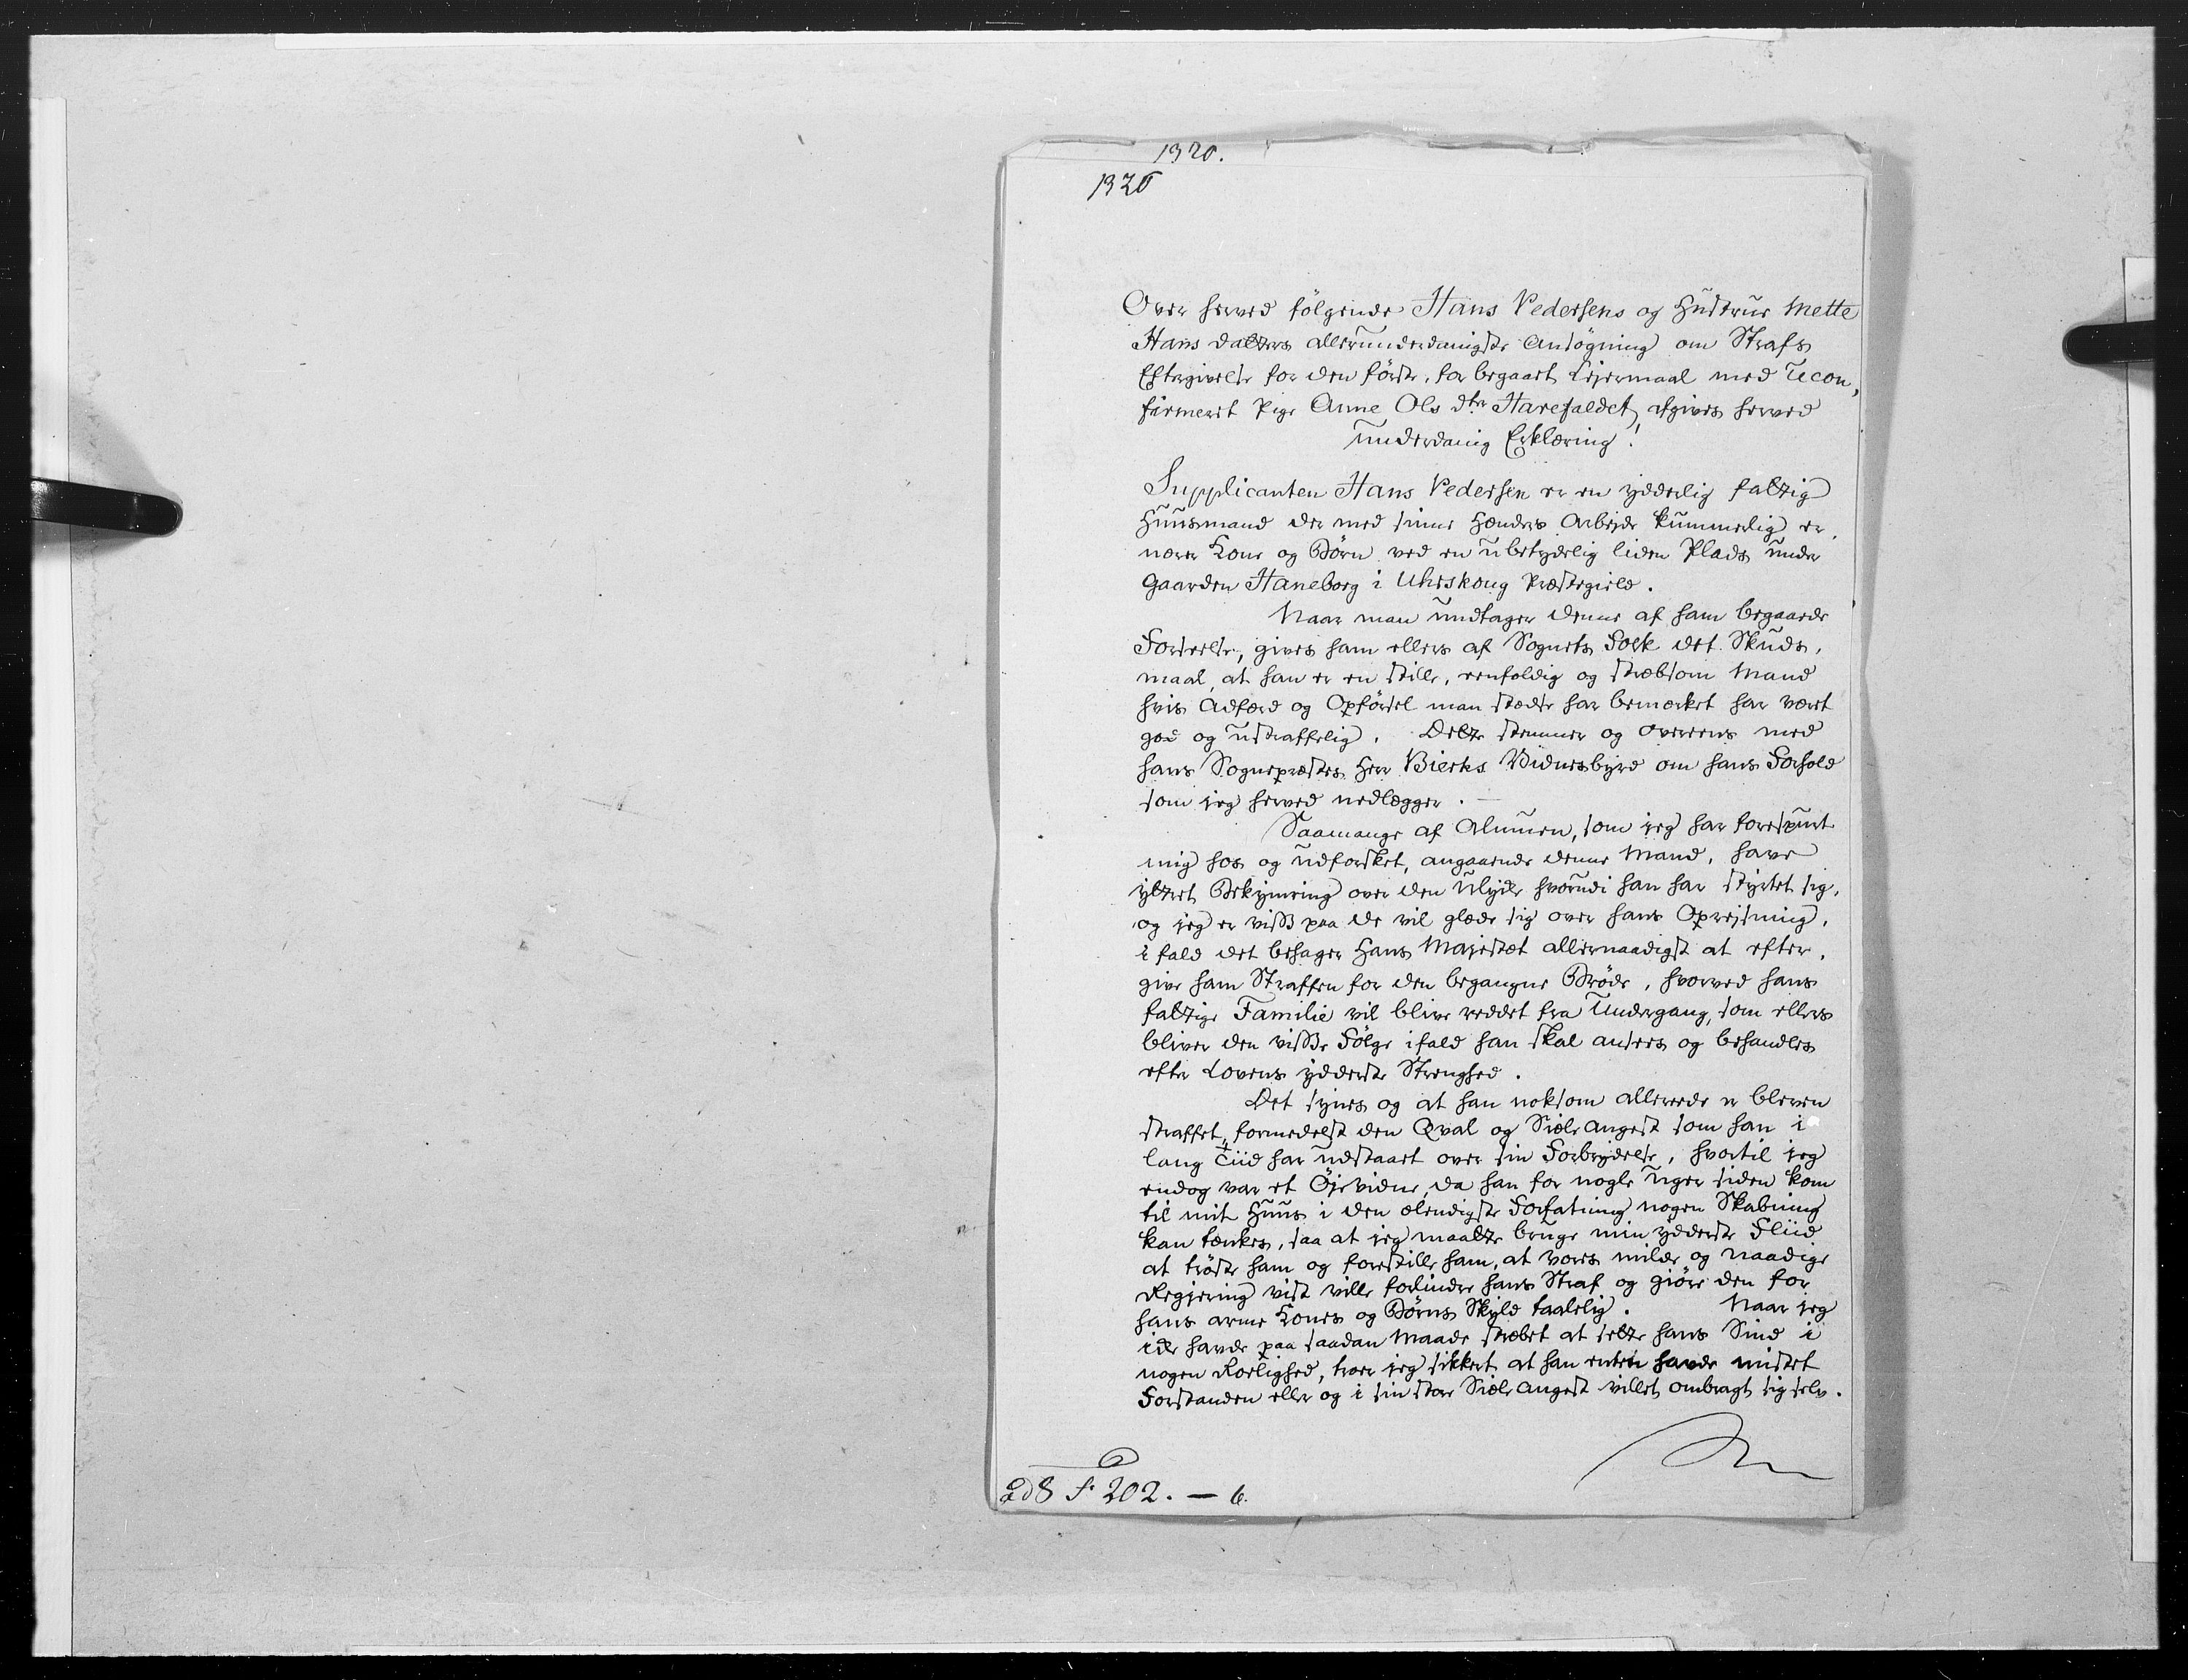 1320.
1320
Over herved følgende Hans Pedersens og Hustrue Mette
Hans datters allerunderdanigste Ansøgning om Strafs
Eftergivelse for den første, for begaaet Lejermaal med Ucon,
firmeret Pige Anne Ols dtr Harefaldet, afgives herved
underdanig Erklæring!
Supplicanten Hans Pedersen er en ydderlig fattig
Huusmand der med sinne Hænders Arbejde kummerlig er,
nærer Kone og Børn ved en ubetydelig liden Plads under
Gaarden Haneborg i Uhrskoug Præstegield.
Naar man undtager denne af ham begaaede
Forseelse, gives ham ellers af Sognets Folk det Skuds,
maal, at han er en stille, eenfoldig og stræbsom Mand
hvis Adfærd og Opførsel man stedse har bemærket har været
god og ustraffelig. Dette stemmer og overeens med
hans Sognepræstes Herr Bierks Vidnesbyrd om hans Forhold
som jeg herved nedlægger.
Saamange af Almuen, som jeg har forespurt
mig hos og udforsket, angaaende denne Mand, have
yttret Bekymring over den Ulykke hvorudi han har styrtet sig,
og jeg er viss paa de vil glæde sig over hans Oprejsning,
i fald det behager Hans Majestæt allernaadigst at efter,
give ham Straffen for den begangne Brøde, hvorved hans
fattige Familie vil blive reddet fra Undergang, som ellers
bliver den visse Følge ifald han skal ansees og behandles
efter Lovens ydderste Strenghed.
Det synes og at han noksom allereede er bleven
straffet, formedelst den Qval og Siæle Angest som han i
lang Tiid har udstaaet over sin Forbrydelse, hvortil jeg
endog var et Øjevidne, da han for nogle Uger siden kom
til mit Huus i den elendigste Forfatning nogen Skabning
kan tænkes, saa at jeg maatte bruge min ydderste Fliid
at trøste ham og forestille ham, at vores milde og naadige
Regjering vist ville forlindre hans Straf og giøre den for
hans arme Kones og Børns Skyld taalelig. Naar jeg
icke havde paa saadan Maade stræbet at sette hans Sind i
nogen Roelighed, troer jeg sikkert at han enten havde mistet
Forstanden eller og i sin store Siæle Angest villet ombragt sig selv.
F 202. — 6.